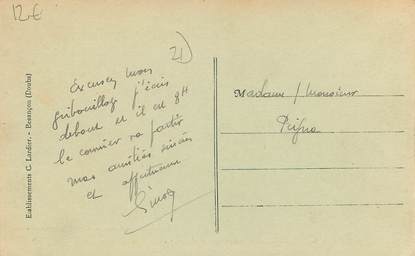 12.€
21)
Excusez mon
gribouillage j'écris
debout et il est 8H
le courrier va partir
mes amitiés
et
Madame / Monsieur
Etablissements C. Lardier. - Besançon (Doubs)